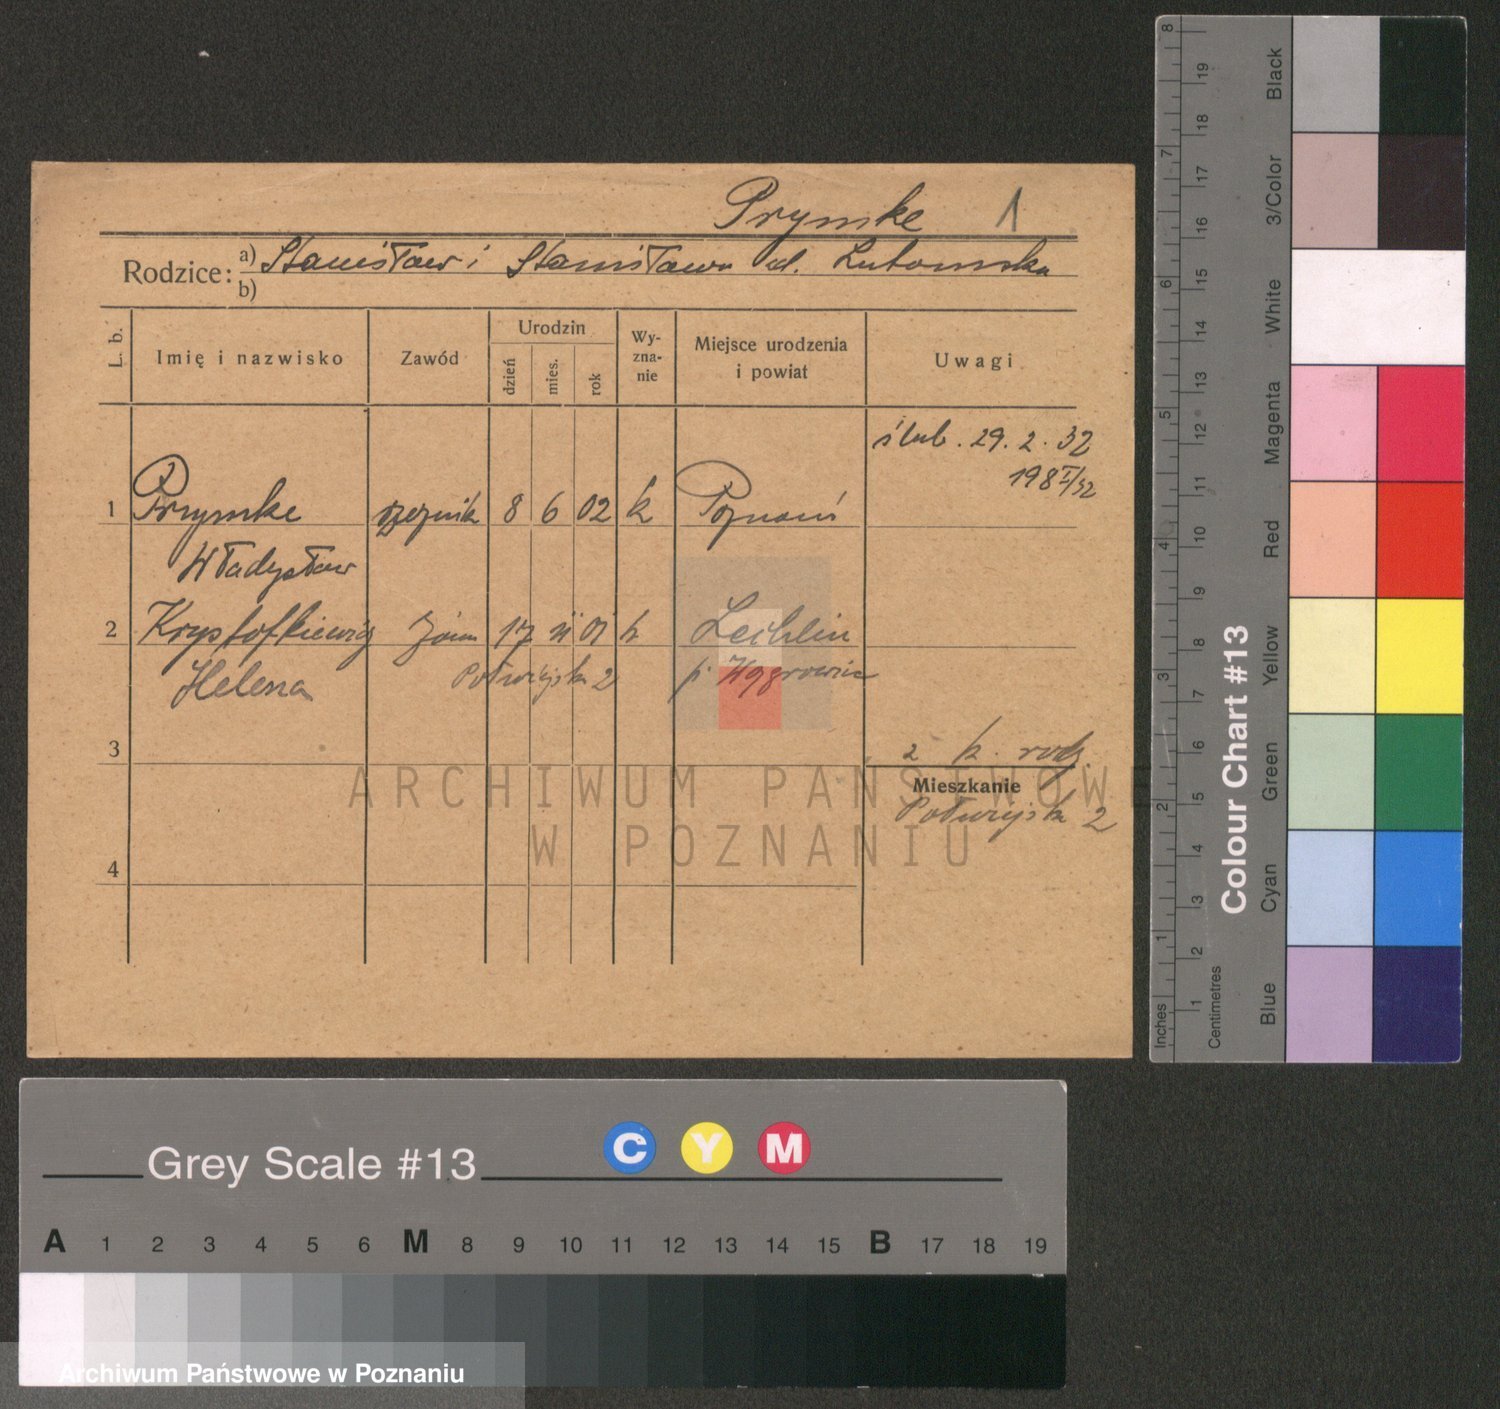 Prymke 1
Rodzice: a) Stanisław i Stanisława d. Lutomska
b)
L. b. Imię i nazwisko Zawód Urodzin dzień mies. rok Wy-zna-nie Miejsce urodzenia i powiat Uwagi
ślub. 29. 2. 32
198 I/32
1 Prymke rzeźnik 8 6 02 k Poznań
Władysław
2 Krysztofkiewicz żona 17 01 k Lechlin
Helena Półwiejska 2 p. Wągrowiec
3
z k. rodz.
Mieszkanie
Półwiejsk 2
4
ARCHIWUM PAŃSTWOWE
W POZNANIU
Grey Scale #13
C Y M
A 1 2 3 4 5 6 M 8 9 10 11 12 13 14 15 B 17 18 19
Archiwum Państwowe w Poznaniu
Colour Chart #13
Blue Cyan Green Yellow Red Magenta White 3/Color Black
Inches 1 2 3 4 5 6 7 8
Centimetres 1 2 3 4 5 6 7 8 9 10 11 12 13 14 15 16 17 18 19